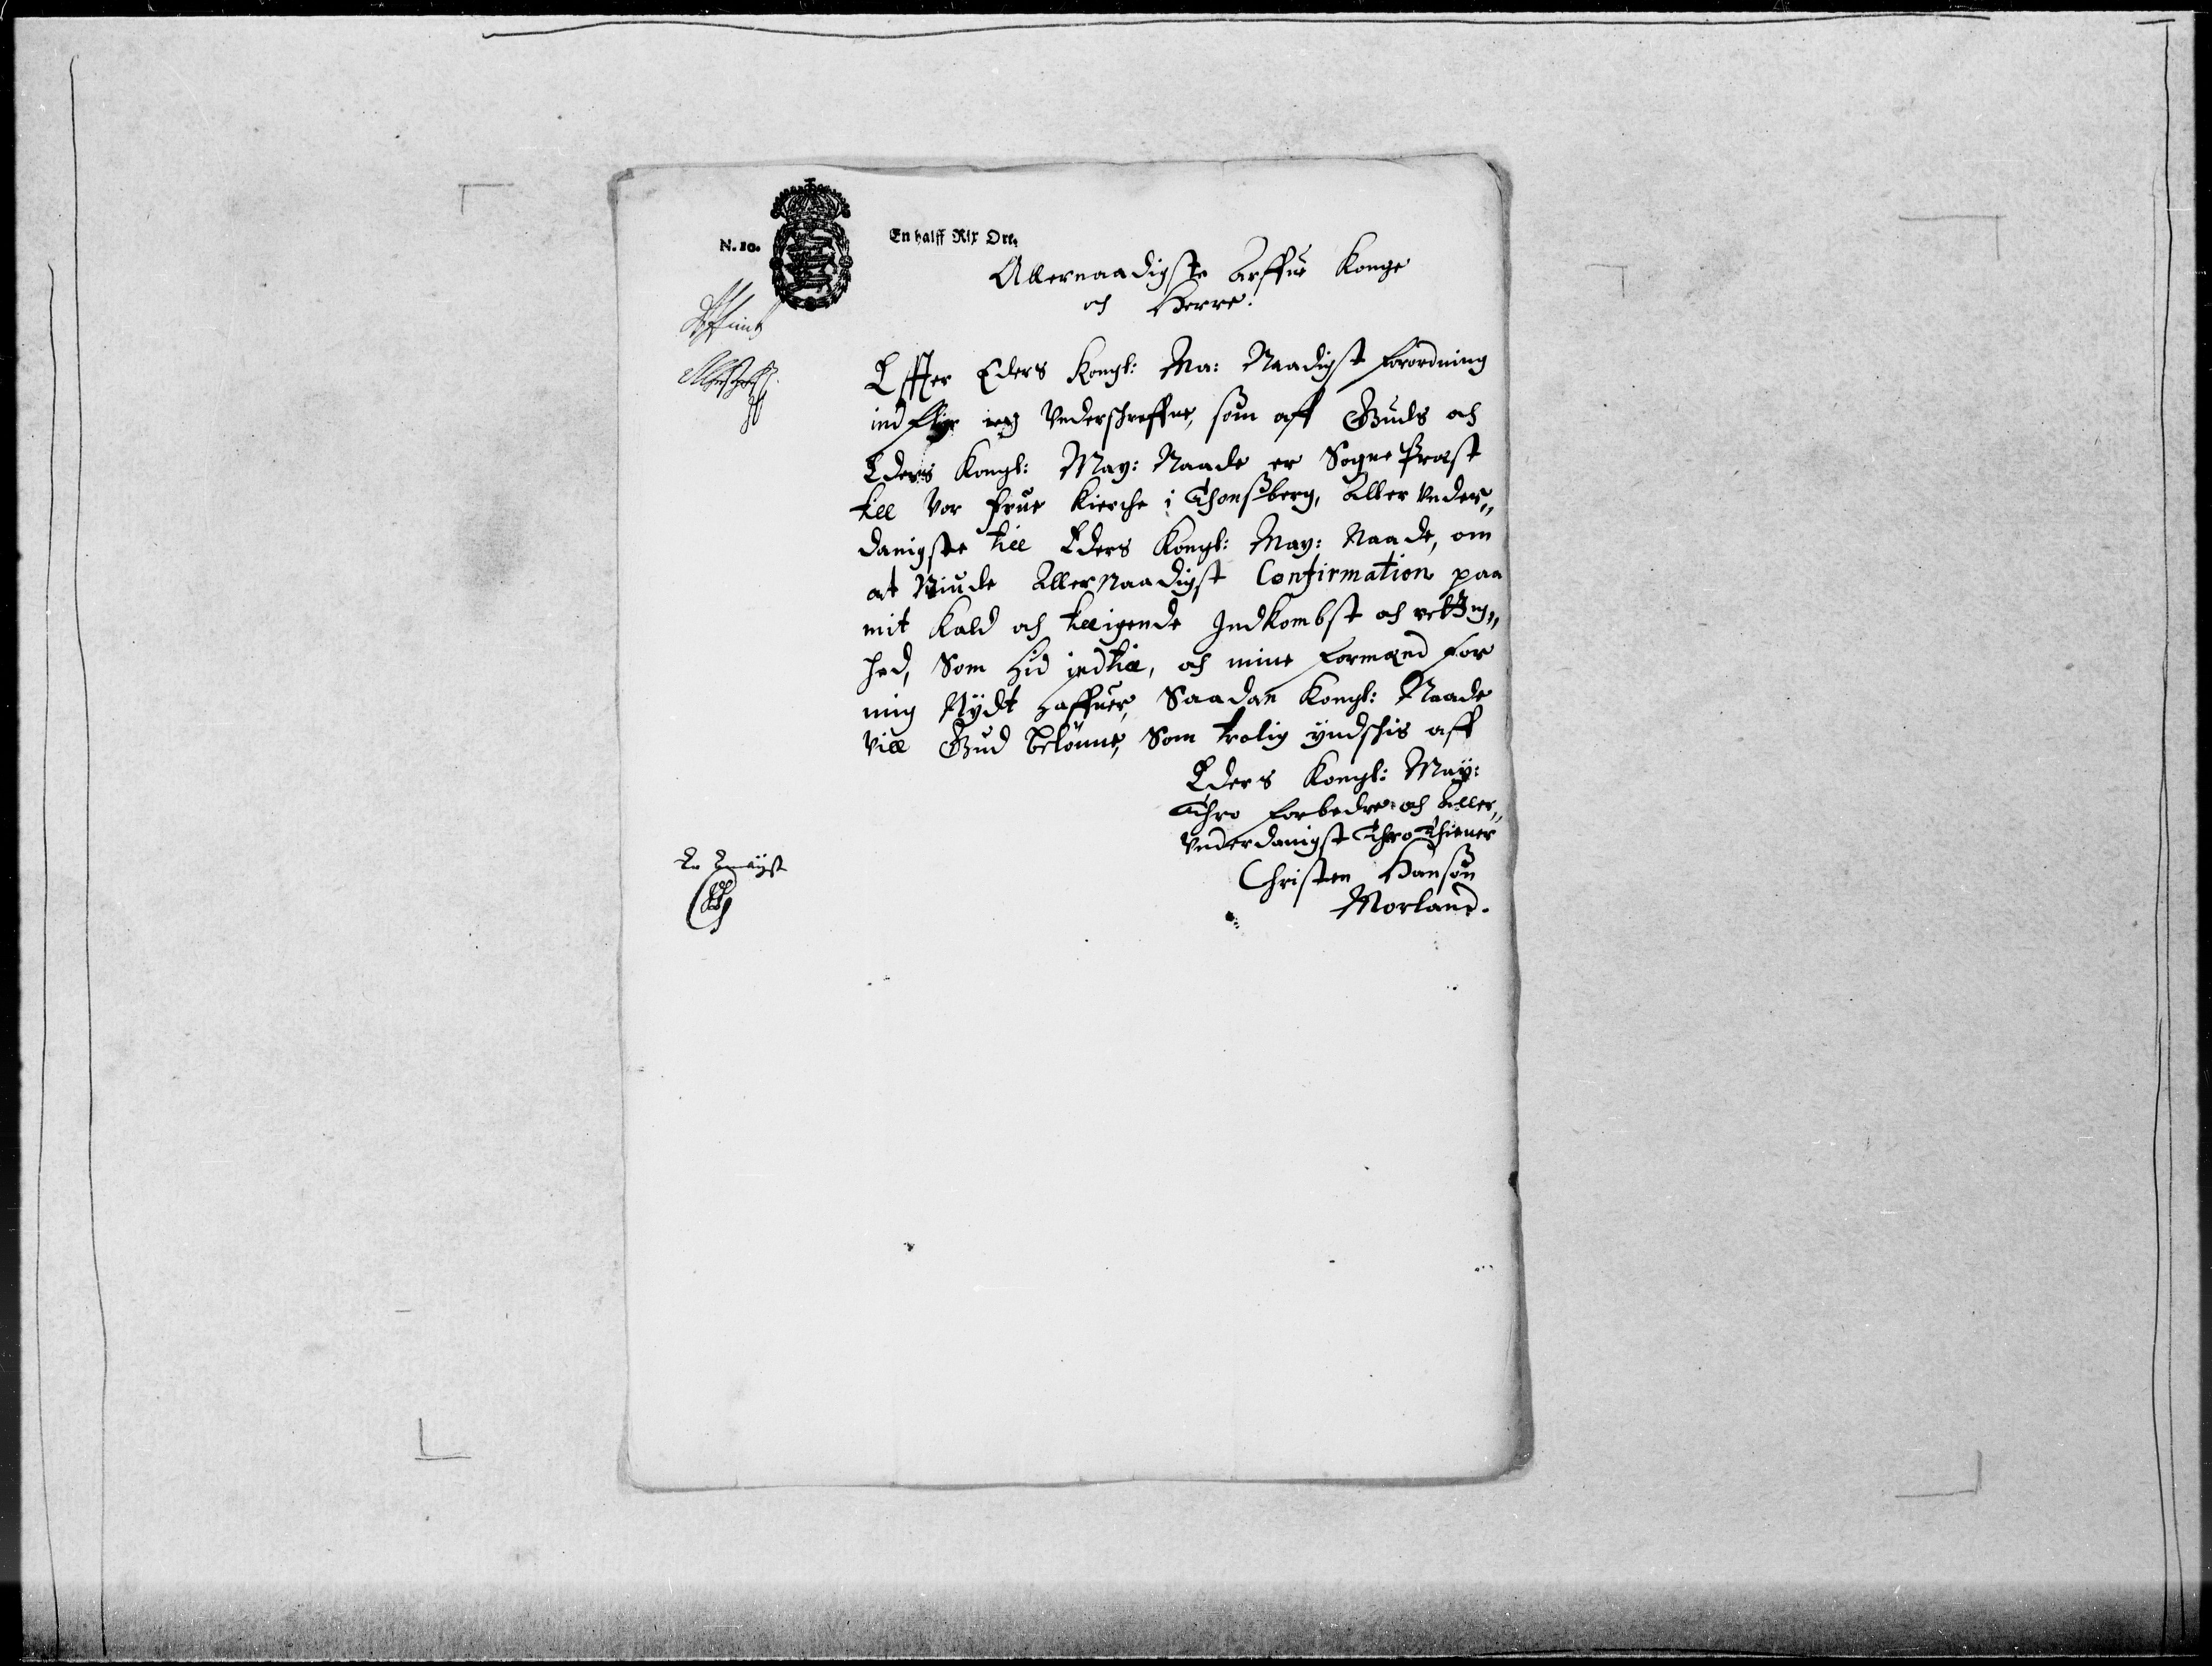 N. 10.
En halff Rix Ort.
Allernaadigste Arffue Konge
och Herre.
Effter Eders Kongl: Ma: Naadigst forordning
ind flyr ieg Vnderschreffne, som aff Guds och
Eders Kongl: May: Naade er Sogne Præst
till Vor frue Kierche i Thonsberg, Aller Vnder„
danigste till Eders Kongl: May: Naade, om
at Niude Allernaadigst Confirmation paa
mit Kald och tilligende Indkombst och rettig„
hed, Som hid indtil, och mine formænd for
mig Nydt haffuer, Saadan Kongl: Naade
Vill Gud belønne, Som trolig yndschis aff
Eders Kongl: Maÿ:
Thro forbedre och Aller„
Vnderdanigst Thro Thiener
Christen Hansøn
Morland.